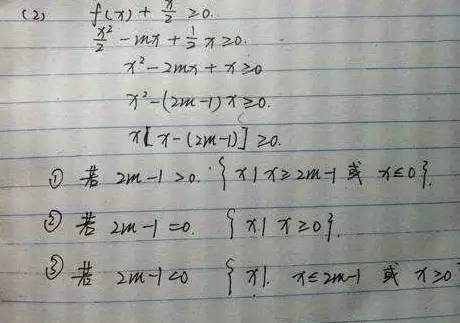 (2) f(x) + x/2 ≥0.
x²/2 - mx + 1/2 x ≥0.
x² - 2mx + x ≥0
x² - (2m-1) x ≥0.
x[x - (2m-1)] ≥0.
① 若 2m-1>0. {x| x≥2m-1 或 x≤0}.
② 若 2m-1=0. {x| x≥0}.
③ 若 2m-1<0 {x|. x≤2m-1 或 x≥0